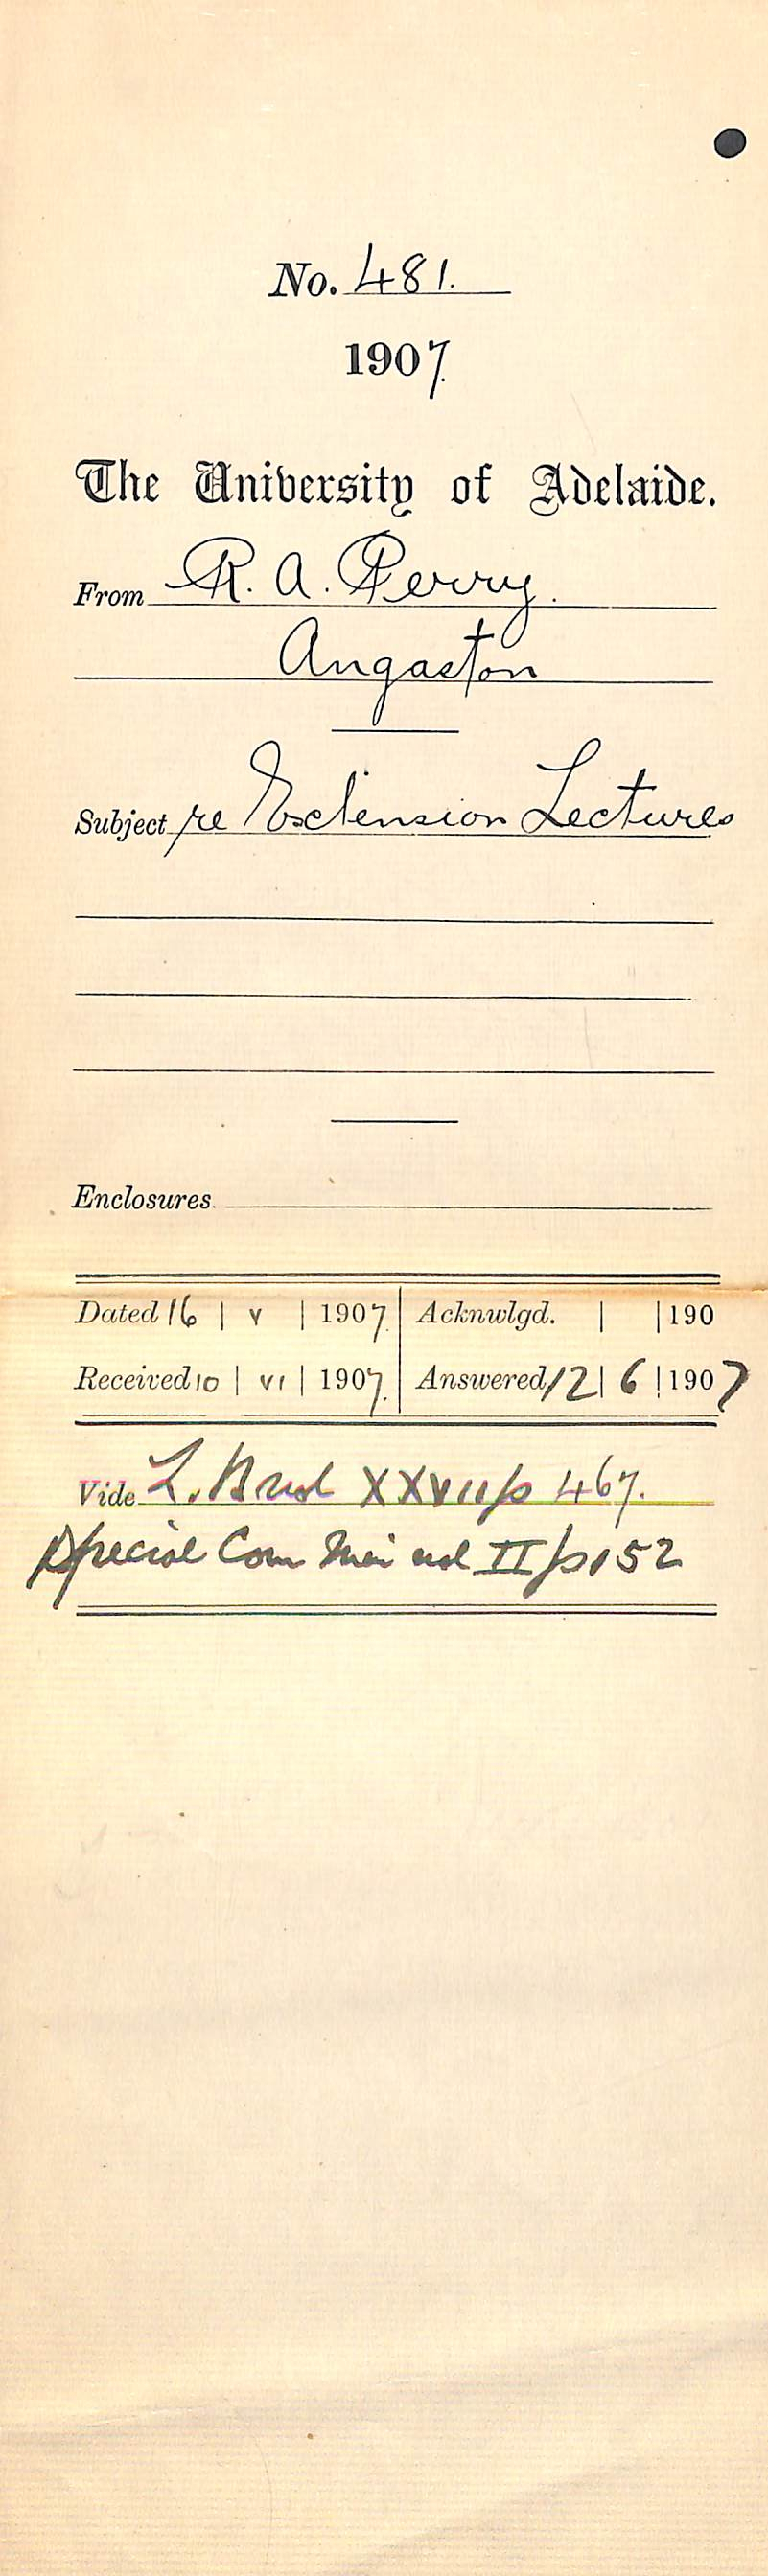 No. 481.
1907
The University of Adelaide.
From R. A. Perry.
Angaston
Subject re Extension Lectures
Enclosures.
Dated 16 | V | 1907. Acknwlgd. | | 190
Received 10 | VI | 1907. Answered 12 | 6 | 1907
Vide L. XXVII p 467.
Special Com Min vol II p 152